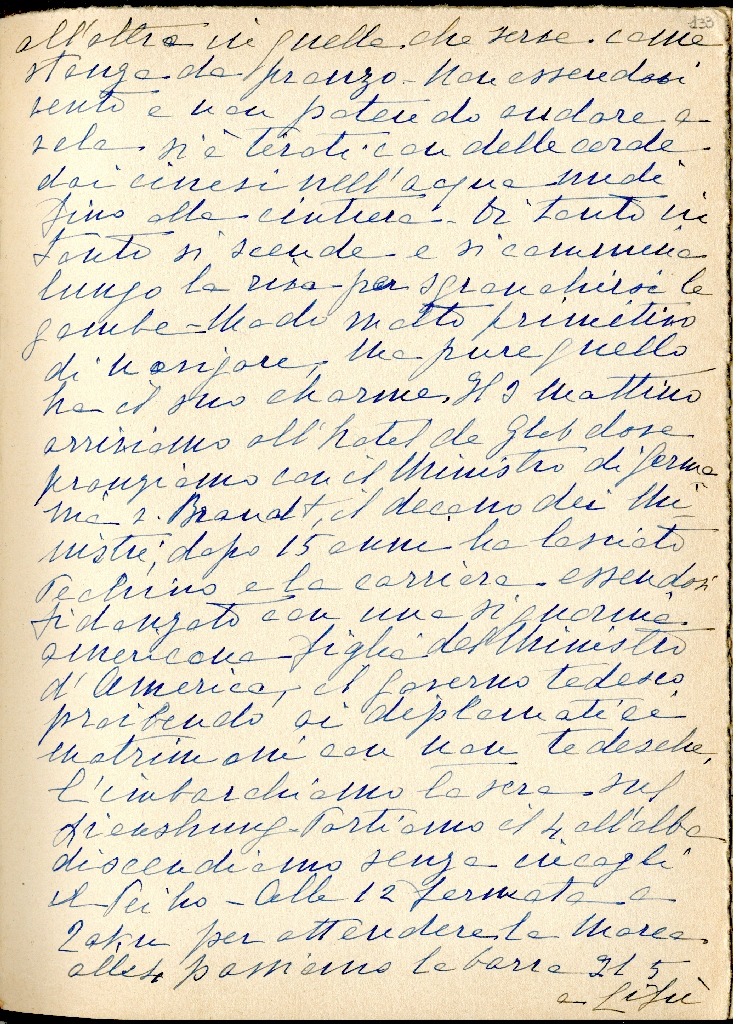 138
all'altra in quella che serve come
stanza da pranzo - Non essendovi
vento e non potendo andare a
vela si è tirati con delle corde
dai cinesi nell'acqua nudi
fino alla cintura - Di tanto in
tanto si scende e si cammina
lungo la riva per sgranchirsi le
gambe - Modo molto primitivo
di navigare, ma pure quello
ha il suo charme. Il 3 mattino
arriviamo all'hotel de Glob dove
pranziamo con il Ministro di Germa
nia v. Brandt, il decano dei Mi-
nistri, dopo 15 anni ha lasciato
Pechino e la carriera essendosi
fidanzato con una signorina
americana figlia del Ministro
d'America, il governo tedesco
proibendo ai diplomatici
matrimoni con non tedesche,
C'imbarchiamo la sera sul
Lienshung - Partiamo il 4 all'alba
discendiamo senza incagli
il Peiho - Alle 12 fermata a
Taku per attendere la marea
alle 4 passiamo la barra Il 5
a Cifù